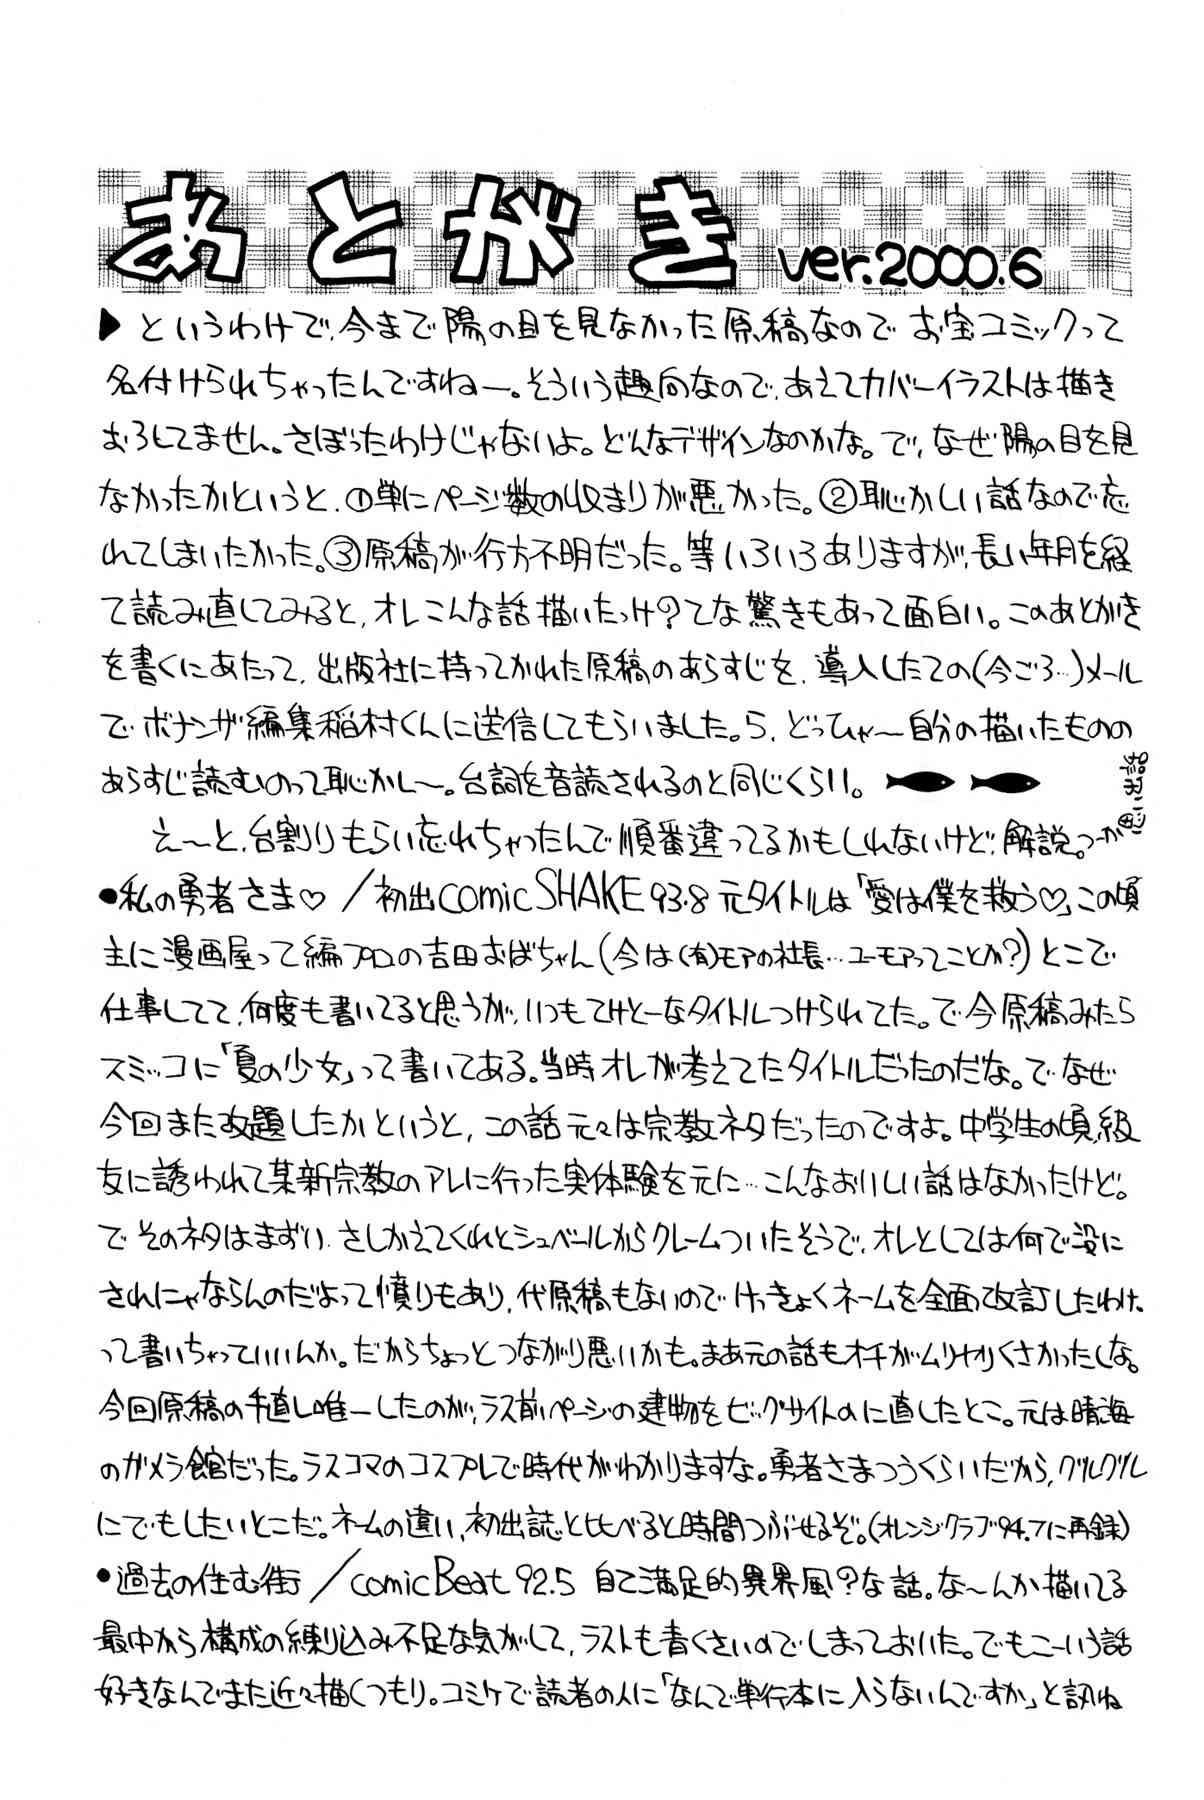 あとがき ver.2000.6
▶というわけで、今まで陽の目を見なかった原稿なので お宝コミックって
名付けられちゃったんですねー。そういう趣向なので、あえてカバーイラストは描き
おろしてません。さぼったわけじゃないよ。どんなデザインなのかな。で、なぜ陽の目を見
なかったかというと、①単にページ数の収まりが悪かった。②恥かしい話なので忘
れてしまいたかった。③原稿が行方不明だった。等いろいろありますが、長い年月を経
て読み直してみると、オレこんな話描いたっけ?てな驚きもあって面白い。このあとがき
を書くにあたって、出版社に持ってかれた原稿のあらすじを、導入したての(今ごろ…)メール
でボナンザ編集稲村くんに送信してもらいました。ら、どっひゃ〜自分の描いたものの
あらすじ読むのって恥かし〜。台詞を音読されるのと同じくらい。
え〜と、台割りもらい忘れちゃったんで順番違ってるかもしれないけど、解説。つーか
●私の勇者さま♡/初出comic SHAKE 93.8 元タイトルは「愛は僕を救う♡」この頃
主に漫画屋って編プロの吉田おばちゃん(今は(有)モアの社長…ユーモアってことか?)とこで
仕事してて、何度も書いてると思うが、いつもてけとーなタイトルつけられてた。で今原稿みたら
スミッコに「夏の少女」って書いてある。当時オレが考えてたタイトルだったのだな。で なぜ
今回また改題したかというと、この話元々は宗教ネタだったのですよ。中学生の頃、級
友に誘われて某新宗教のアレに行った実体験を元に…こんなおいしい話はなかったけど。
で そのネタはまずい、さしかえてくれとシュベールからクレームついたそうで、オレとしては何で没に
されにゃならんのだよって憤りもあり、代原稿もないので けっきょくネームを全面改訂したわけ。
って書いちゃっていいんか。だからちょっとつながり悪いかも。まあ元の話もオチがムリヤリくさかったしな。
今回原稿の手直し唯一したのが、ラス前ページの建物をビッグサイトのに直したとこ。元は晴海
のガメラ館だった。ラスコマのコスプレで時代がわかりますな。勇者さまつうくらいだから、グルグル
にでもしたいとこだ。ネームの違い、初出誌と比べると時間つぶせるぞ。(オレンジクラブ94.7に再録)
●過去の住む街/comic Beat 92.5 自己満足的異界風?な話。な〜んか描いてる
最中から構成の練り込み不足な気がして、ラストも青くさいのでしまっておいた。でもこーいう話
好きなんでまた近々描くつもり。コミケで読者の人に「なんで単行本に入らないんですか」と訊ね